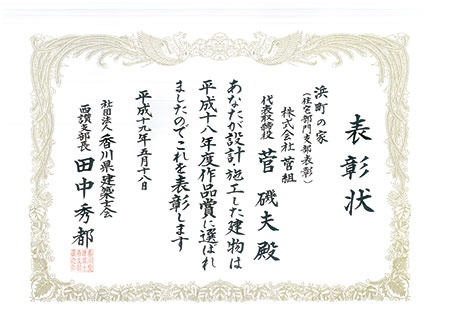 表彰状
浜町の家
(住宅部門支部表彰)
株式会社 菅組
代表取締役 菅 磯夫 殿
あなたが設計・施工した建物は
平成十八年度作品賞に選ばれ
ましたのでこれを表彰します
平成十九年五月十八日
社団法人 香川県建築士会
西讃支部長 田中秀都